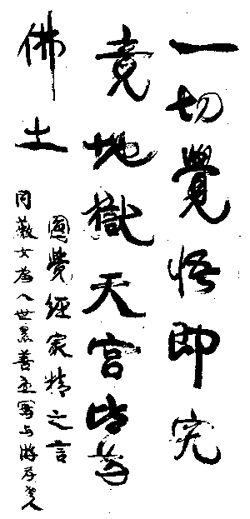 一切覺悟即究
竟地獄天宮皆為
佛土
圓覺經精之言
同薇女為入世善寫与游存老人